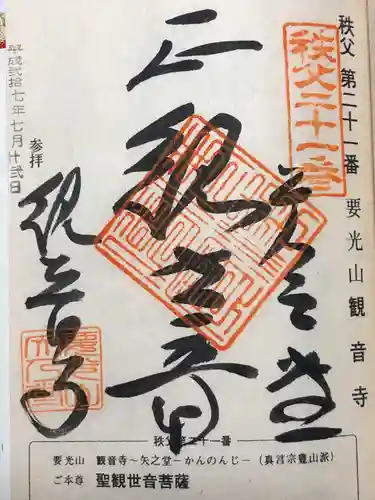 秩父 第二十一番 要光山観音寺
秩父二十一番
正観世音
観音寺
参拝
平成弐拾七年七月十弐日
秩父第二十一番
要光山 観音寺～矢之堂－かんのんじ－(真言宗豊山派)
ご本尊 聖観世音菩薩